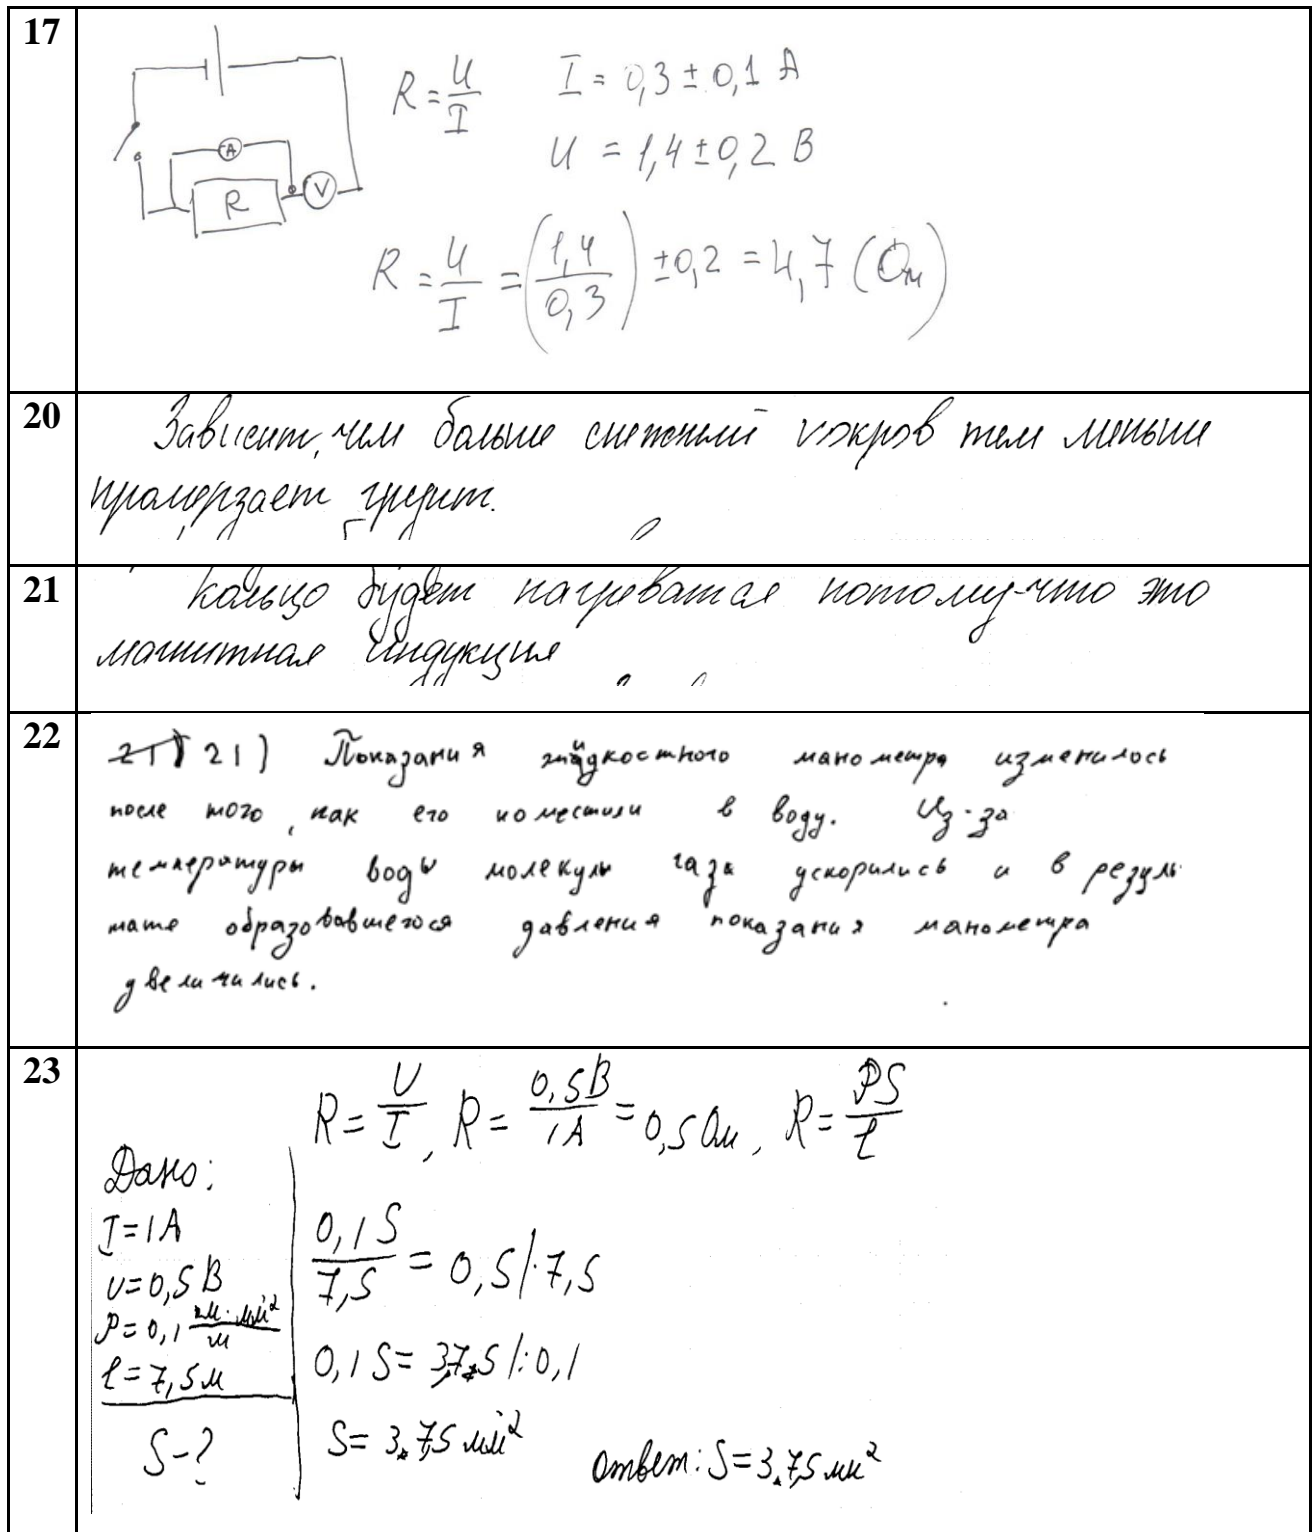 17
A
R
V
R = U/I I = 0,3 ± 0,1 А
U = 1,4 ± 0,2 В
R = U/I = (1,4/0,3) ± 0,2 = 4,7 (Ом)
20
Зависит, чем больше снежний покров тем меньше
промерзает грунт.
21
Кольцо будет нагреватся потому-что это
магнитная индукция
22
21) 21) Показания жидкостного манометра изменилось
после того, как его поместили в воду. Из-за
температуры воды молекулы газа ускорились и в резуль
тате образовавшегося давления показания манометра
увеличились.
23
R = U/I, R = 0,5В/1А = 0,5 Ом, R = РS/l
Дано:
I = 1А
U = 0,5 В
Р = 0,1 Ом·мм²/м
l = 7,5 м
S - ?
0,1 S/7,5 = 0,5 |·7,5
0,1 S = 3,75 |:0,1
S = 3,75 мм²
Ответ: S = 3,75 мм²